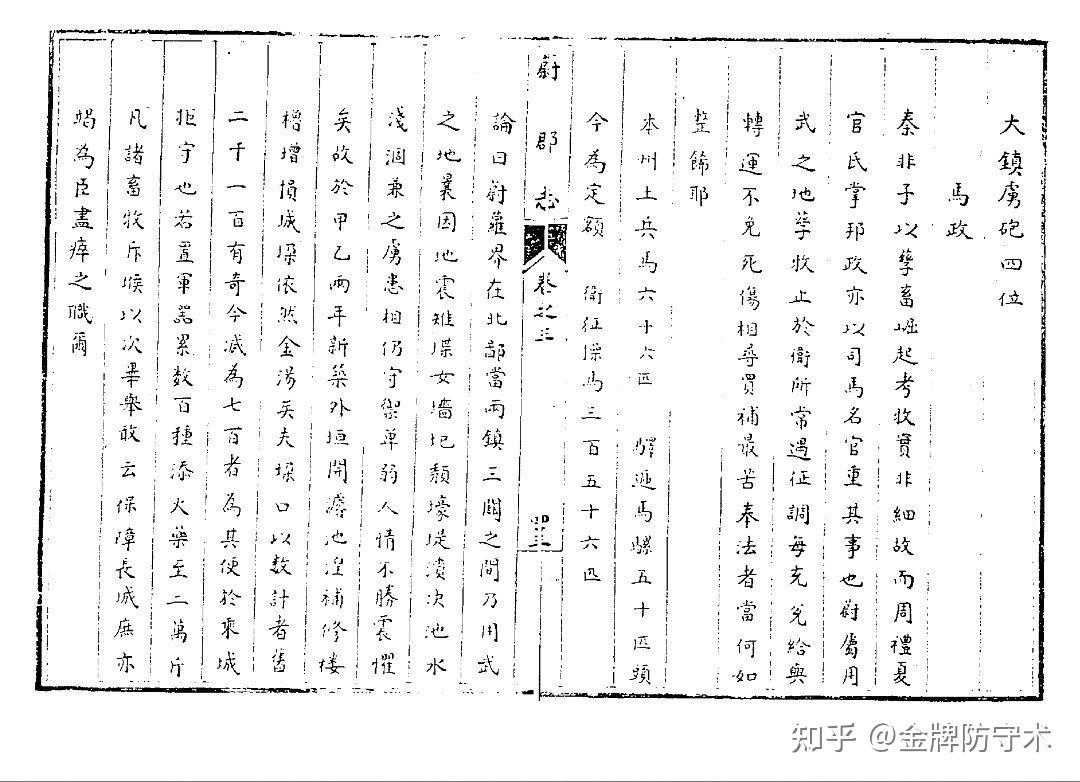 大鎮虜砲四位
馬政
秦非子以孳畜崛起考牧實非細故而周禮夏
官氏掌邦政亦以司馬名官重其事也蔚屬用
武之地孳牧止於衛所常遇征調每充兌給與
轉運不免死傷相尋買補最苦奉法者當何如
整飾耶
本州土兵馬六十六匹 驛遞馬騾五十匹頭
今為定額 衛征操馬三百五十六匹
蔚郡志 卷之三
論曰蔚蘿界在北鄙當兩鎮三關之間乃用武
之地曩因地震雉堞女墻圮頹壕堤潰决池水
淺涸兼之虜患相仍守禦单弱人情不勝震懼
矣故於甲乙兩年新築外垣開濬池湟補修楼
櫓增損城垛依然金湯矣夫垛口以数計者舊
二千一百有奇今减為七百者為其便於乘城
拒守也若置軍噐累数百種添火藥至二萬斤
凡諸畜牧斥堠以次畢舉敢云保障長城庶亦
竭為臣盡瘁之職爾
知乎 @金牌防守术